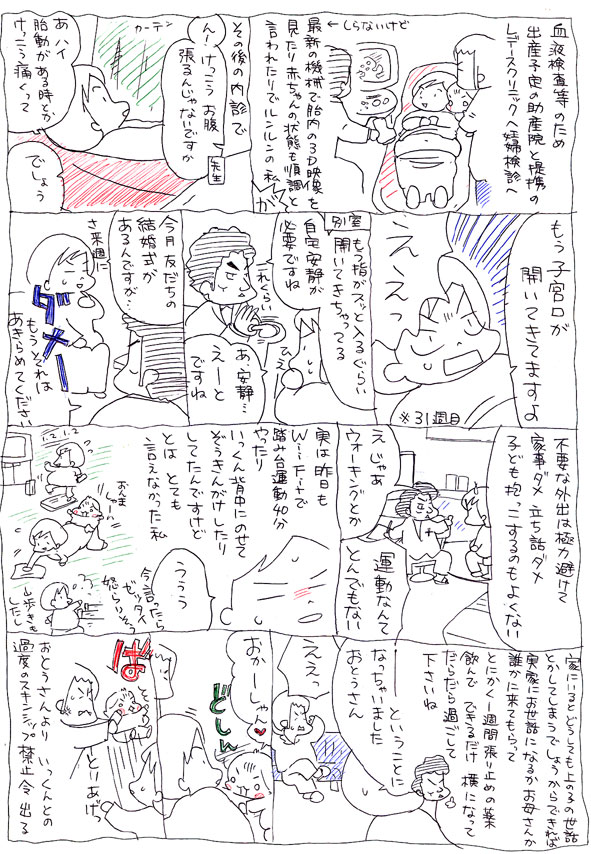 血液検査等のため
出産予定の助産院と提携の
レディースクリニックへ妊婦検診へ
←しらないけど
最新の機械で胎内の3D映像を
見たり赤ちゃんの状態も順調と
言われたりでルンルンの私
が
その後の内診で
ん!けっこうお腹
張るんじゃないですか
先生
カーテン
あハイ
胎動がある時とか
けっこう痛くって
でしょう
もう子宮口が
開いてきてますよ
ええっ
※31週目
別室
もう指がスッと入るぐらい
開いてきちゃってる
自宅安静が
必要ですね
これぐらい
ひえ
あ、安静…
えーと
ですね
今月友だちの
結婚式が
あるんですが…
さ来週に
ダメー
もうそれは
あきらめてください
不要な外出は極力避けて
家事ダメ 立ち話ダメ
子ども抱っこするのもよくない
えじゃあ
ウォーキングとか
運動なんて
とんでもない
実は昨日も
Wii Fitで
踏み台運動40分
やったり
いっくん背中にのせて
ぞうきんがけしたり
してたんですけど
とは とても
言えなかった私
1、2 1、2
おんま
山歩きも
したし
ううう
今言ったら
ゼッタイ
怒られそう
家にいるとどうしても上の子の世話
とかしてしまうでしょうからできれば
実家にお世話になるかお母さんか
誰かに来てもらって
とにかく一週間張り止めの薬
飲んで できるだけ 横になって
だらだら過ごして
下さいね
ーということに
なっちゃいました
おとうさん
ええっ
おかーしゃん
どしん
ば
とりあげ
おとうさんより いっくんとの
過度のスキンシップ 禁止令 出る